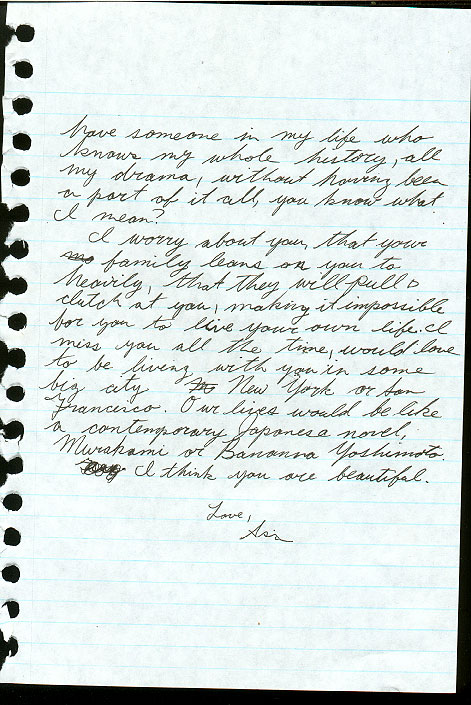 have someone in my life who
knows my whole history, all
my drama, without having been
a part of it all, you know what
I mean?
I worry about you, that your
family leans on you to
heavily, that they will pull
clutch at you, making it impossible
for you to live your own life. I
miss you all the time, would love
to be living with you in some
big city New York or San
Francisco. Our lives would be like
a contemporary Japanese novel,
Murakami or Bananna Yoshimoto.
I think you are beautiful.
Love,